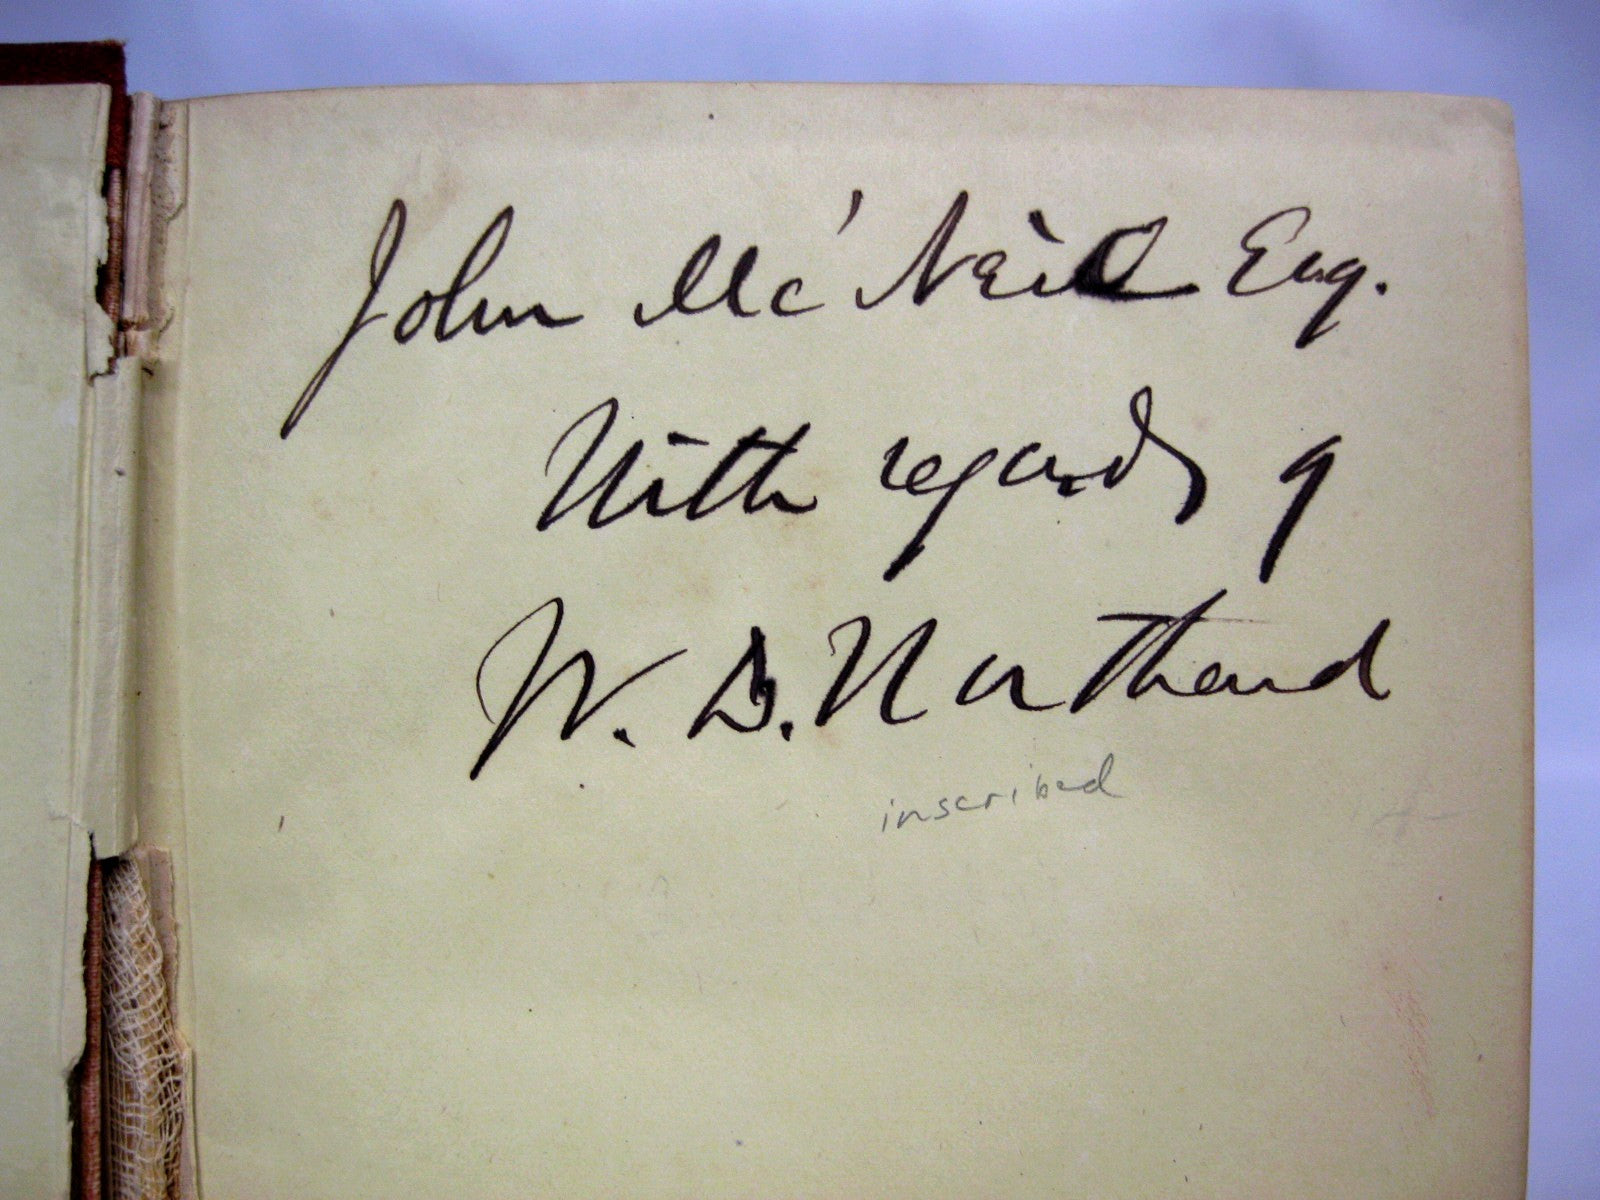 John Mc'Neil Esq.
With regards of
W. D. Northend
inscribed